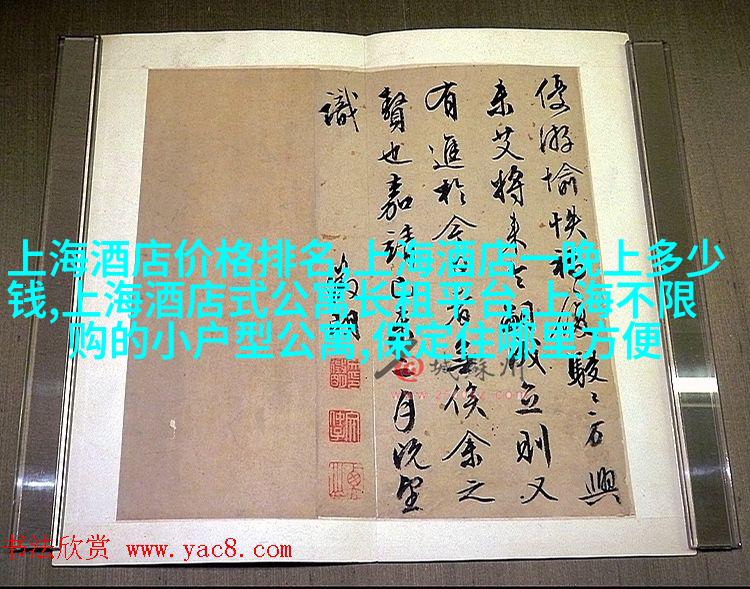 上海酒店价格排名,上海酒店一晚上多少
钱,上海酒店式公寓长租平台,上海不限
购的小户型公寓,保定住哪里方便
優游愉 駸〻方興
未艾將來之 立則又
有進於今 者無俟余之
贅也嘉靖 月既望
明
識
名城蘇州
书法欣赏 www.yac8.com